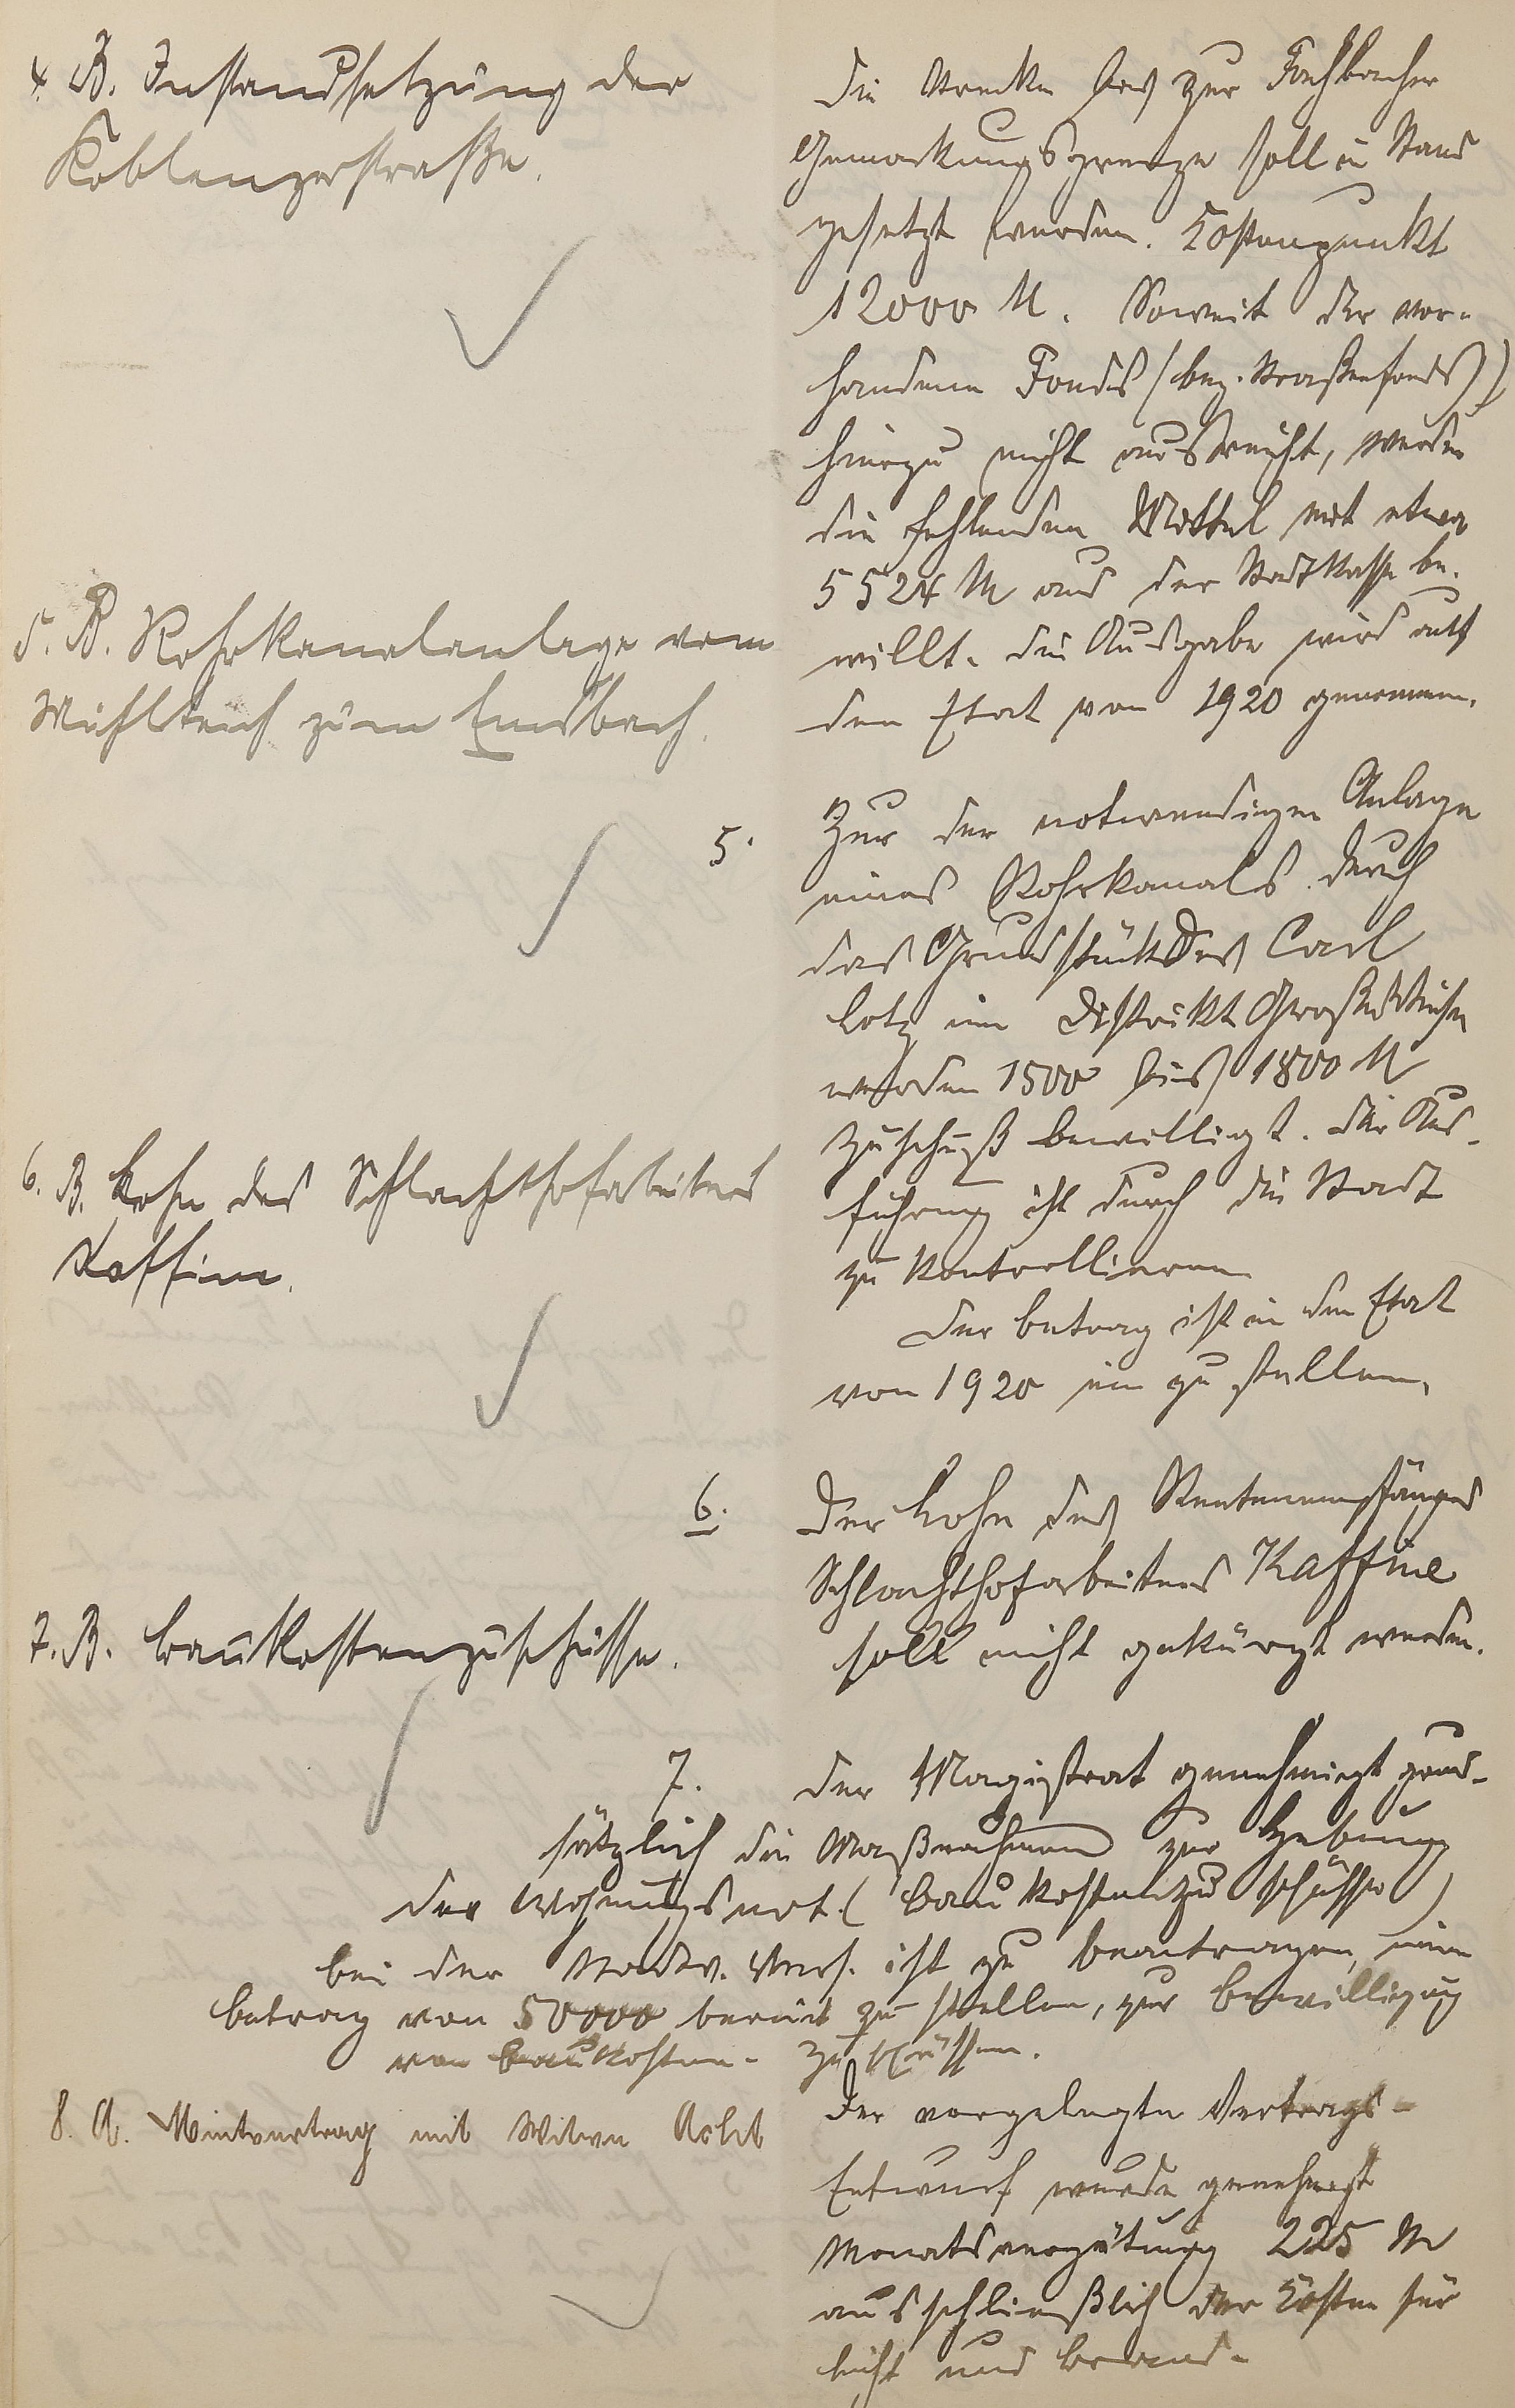 4. B. Instandsetzung der
Koblenzerstraße.
Die Strecke bis zur Fachbacher
Gemarkungsgrenze soll in Stand
gesetzt werden. Kostenpunkt
12000 M. Soweit der vor-
handene Fonds (bez. Straßenfonds)
hierzu nicht ausreicht, werden
die fehlenden Mittel mit etwa
5524 M aus der Stadtkasse be-
willt. Die Ausgabe wird auf
den Etat von 1920 genommen.
5. B. Rohrkanalanlage vom
Mühlteich zum Emsbach.
5. Zur der notwendigen Anlage
eines Rohrkanals durch
das Grundstück des Carl
Lotz im Distrikt Großwiese
werden 1500 bis 1800 M
Zuschuß bewilligt. Die Aus-
führung ist durch die Stadt
zu kontrollieren
Der Betrag ist in den Etat
von 1920 ein zu stellen.
6. B. Lohn des Schlachthofarbeiters
Kaffine.
6. Der Lohn des Rentenempfängers
Schlachthofarbeiters Kaffine
soll nicht gekürzt werden.
7. B. Baukostenzuschüsse.
7. Der Magistrat genehmigt grund-
sätzlich die Maßnahmen zur Hebung
der Wohnungsnot. (Baukostenzuschüsse)
bei der Stadtv. Vers. ist zu beantragen, einen
Betrag von 50000 bereit zu stellen, zur Bewilligung
von Baukosten- zuschüssen.
8. A. Mietvertrag mit Witwe
Der vorgelegte Vertrags-
Entwurf wurde genehmigt
Monatsvergütung 225 M
ausschließlich der Kosten für
Licht und Brand-